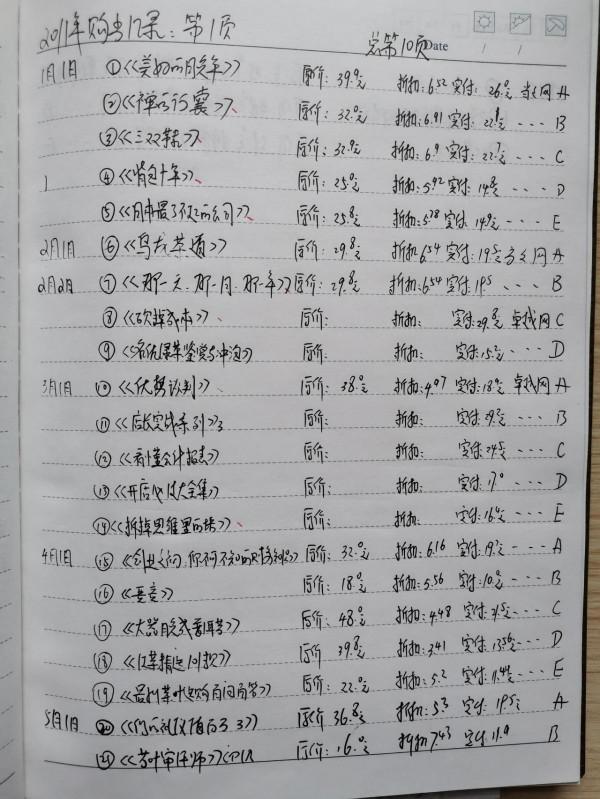 2011年购书记录：第1页 总第10页 Date
1月1日 ①《美好的晚年》 原价：39.9元 折扣：6.52 实付：26.0元 当当网 A
②《禅的行囊》 原价：32.0元 折扣：6.91 实付：22.1 --- B
③《三双鞋》 原价：32.9元 折扣：6.9 实付：22.7元 --- C
④《背包十年》 原价：25.0元 折扣：5.92 实付：14.8元 --- D
⑤《日本最了不起的公司》 原价：25.8元 折扣：5.78 实付：14.9元 --- E
2月1日 ⑥《乌龙茶道》 原价：29.8元 折扣：6.54 实付：19.5元 当当网 A
2月2日 ⑦《那一天.那一月.那一年》 原价：29.8元 折扣：6.54 实付：19.5 --- B
⑧《砍掉成本》 原价： 折扣： 实付：29.8元 卓越网 C
⑨《名优绿茶鉴赏与冲泡》 原价： 折扣： 实付：15.2元 --- D
3月1日 ⑩《优势谈判》 原价：38.0元 折扣：4.97 实付：18.9元 卓越网 A
⑪《店长实战系列》3 原价： 折扣： 实付： --- B
⑫《看懂会计报表》 原价： 折扣： 实付：24.5元 --- C
⑬《开店必备大全集》 原价： 折扣： 实付：17.0 --- D
⑭《拆掉思维里的墙》 原价： 折扣： 实付：16.4元 --- E
4月1日 ⑮《创业之初.你不可不知的财务知识》 原价：32.0元 折扣：6.16 实付：19.7元 --- A
⑯ 原价：18.0元 折扣：5.56 实付：10.0元 --- B
⑰《大器晚成翡翠》 原价：48.0元 折扣：4.48 实付：21.5元 --- C
⑱《红茶精选》 原价：39.8元 折扣：3.41 实付：13.56元 --- D
⑲《茶叶知识百问百答》 原价：22.0元 折扣：5.2 实付：11.44元 --- E
5月1日 ⑳《你的礼仪价值百万3》 原价：36.8元 折扣：5.3 实付：19.5元 A
㉑《茶叶审评师》 原价：16.0元 折扣：7.43 实付：11.9 B